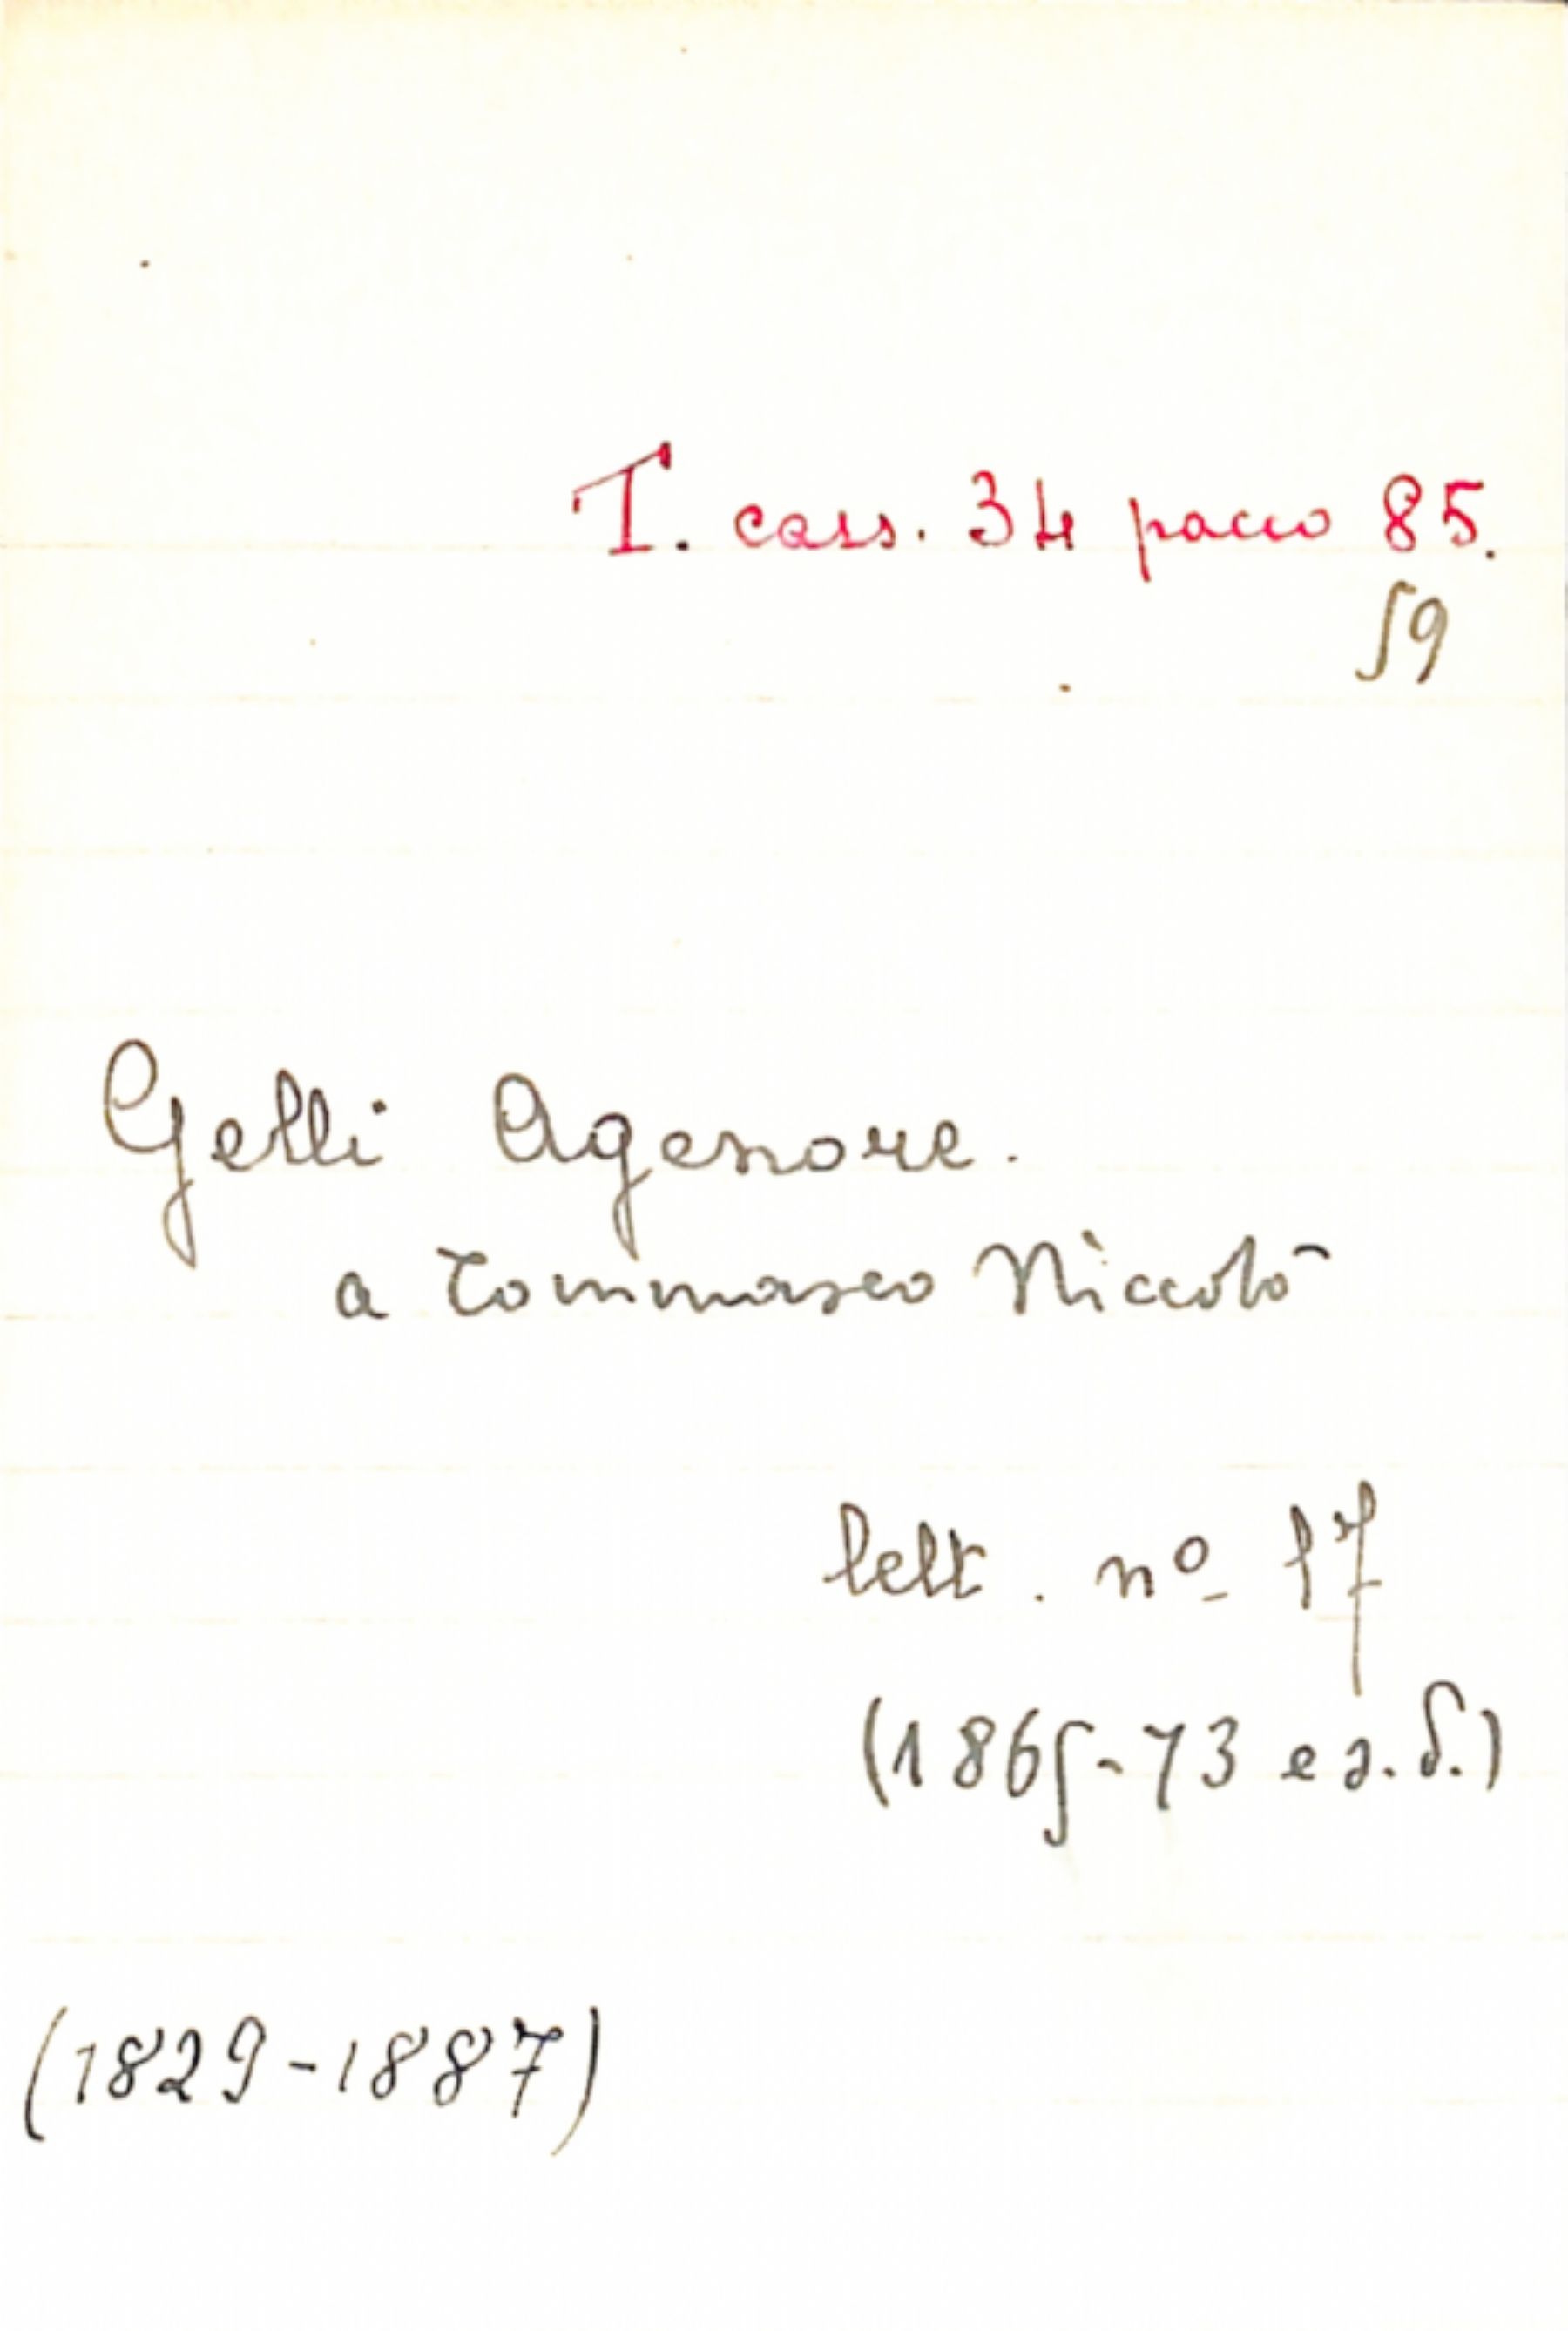 T. cass. 34 pacco 85.
59
Gelli Agenore.
a Tommaseo Niccolò
lett. nº 17
(1865-73 e s.d.)
(1829-1887)